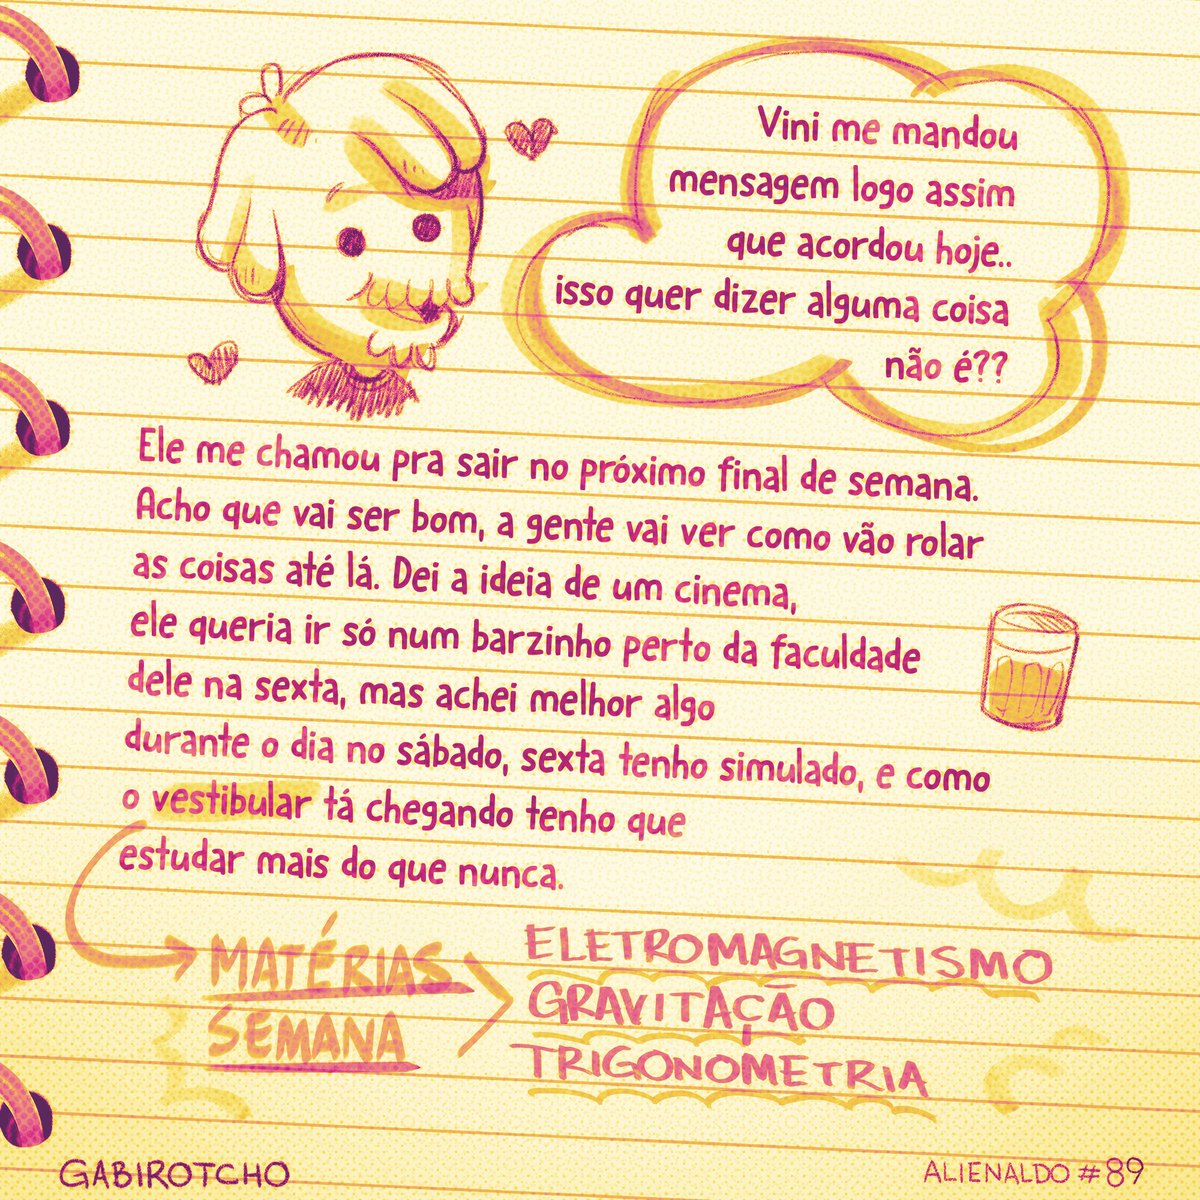 Vini me mandou
mensagem logo assim
que acordou hoje..
isso quer dizer alguma coisa
não é??
Ele me chamou pra sair no próximo final de semana.
Acho que vai ser bom, a gente vai ver como vão rolar
as coisas até lá. Dei a ideia de um cinema,
ele queria ir só num barzinho perto da faculdade
dele na sexta, mas achei melhor algo
durante o dia no sábado, sexta tenho simulado, e como
o vestibular tá chegando tenho que
estudar mais do que nunca.
MATÉRIAS
SEMANA
ELETROMAGNETISMO
GRAVITAÇÃO
TRIGONOMETRIA
GABIROTCHO
ALIENALDO #89